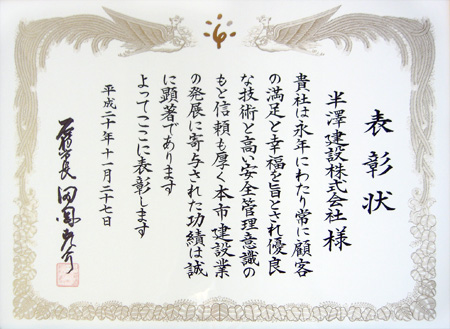 表彰状
半澤建設株式会社 様
貴社は永年にわたり常に顧客
の満足と幸福を旨とされ優良
な技術と高い安全管理意識の
もと信頼も厚く本市建設業
の発展に寄与された功績は誠
に顕著であります
よってここに表彰します
平成二十年十一月二十七日